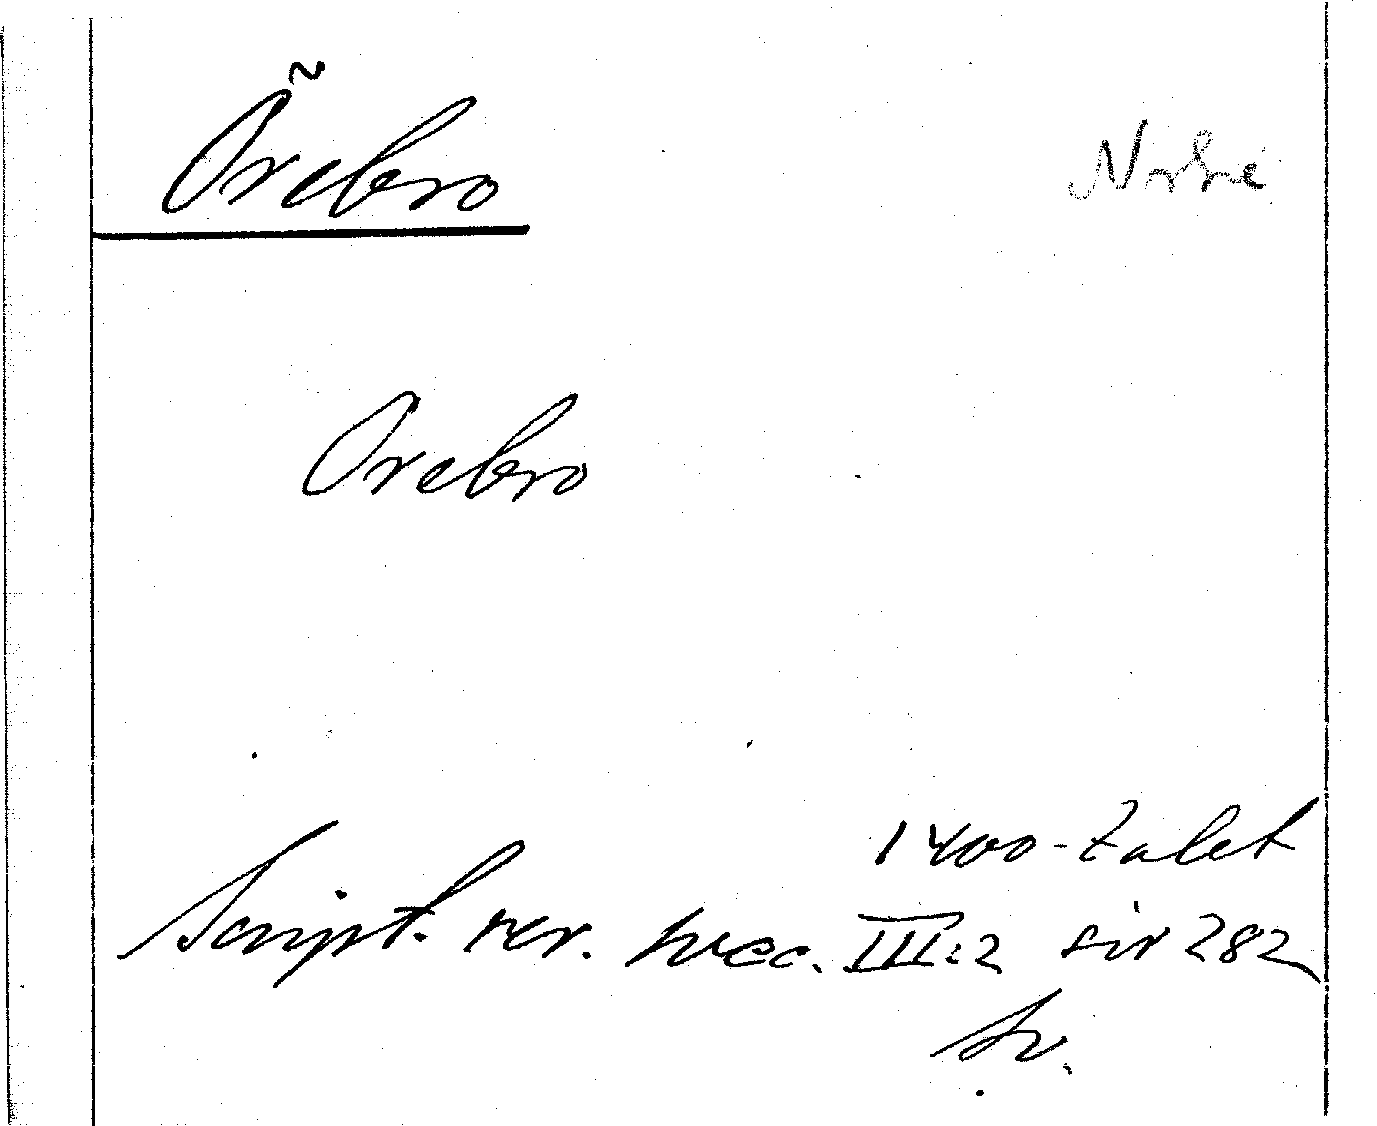 Örebro Närke
Orebro
1400-talet
Script. rer. svec. III:2 sid 282
Sv.